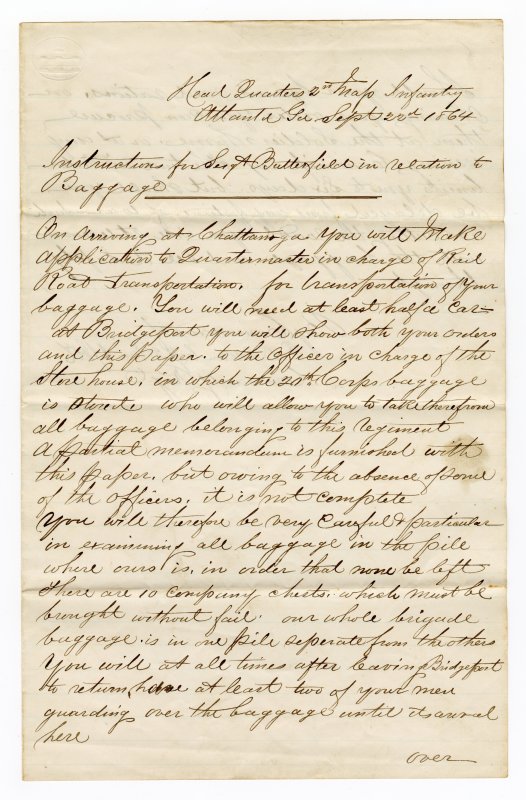 Head Quarters 2nd Mass Infantry
Atlanta Ga Sept 22d 1864
Instructions for Sergt Butterfield in relation to
Baggage
On arriving at Chattanooga you will Make
application to Quartermaster in charge of Rail
Road Transportation. for transportation of your
baggage. You will need at least half a car-
at Bridgeport you will show both your orders
and this paper. to the officer in charge of the
Store house. in which the 20th Corps baggage
is stored who will allow you to take therefrom
all baggage belonging to this regiment
a partial memorandum is furnished with
this paper. but owing to the absence of some
of the officers. it is not complete
you will therefore be very careful & particular
in examining all baggage in the pile
where ours is, in order that none be left
There are 10 company chests. which must be
brought without fail. our whole brigade
baggage. is in one pile seperate from the others
You will at all times after leaving Bridgeport
to return have at least two of your men
guarding over the baggage until its arrival
here
over